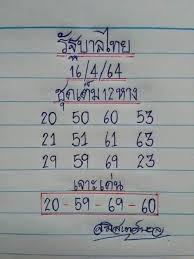 รัฐบาลไทย
16/4/64
ชุดเต็ม 12 หาง
20 50 60 53
21 51 61 63
29 59 69 23
เจาะเด่น
20 - 59 - 69 - 60